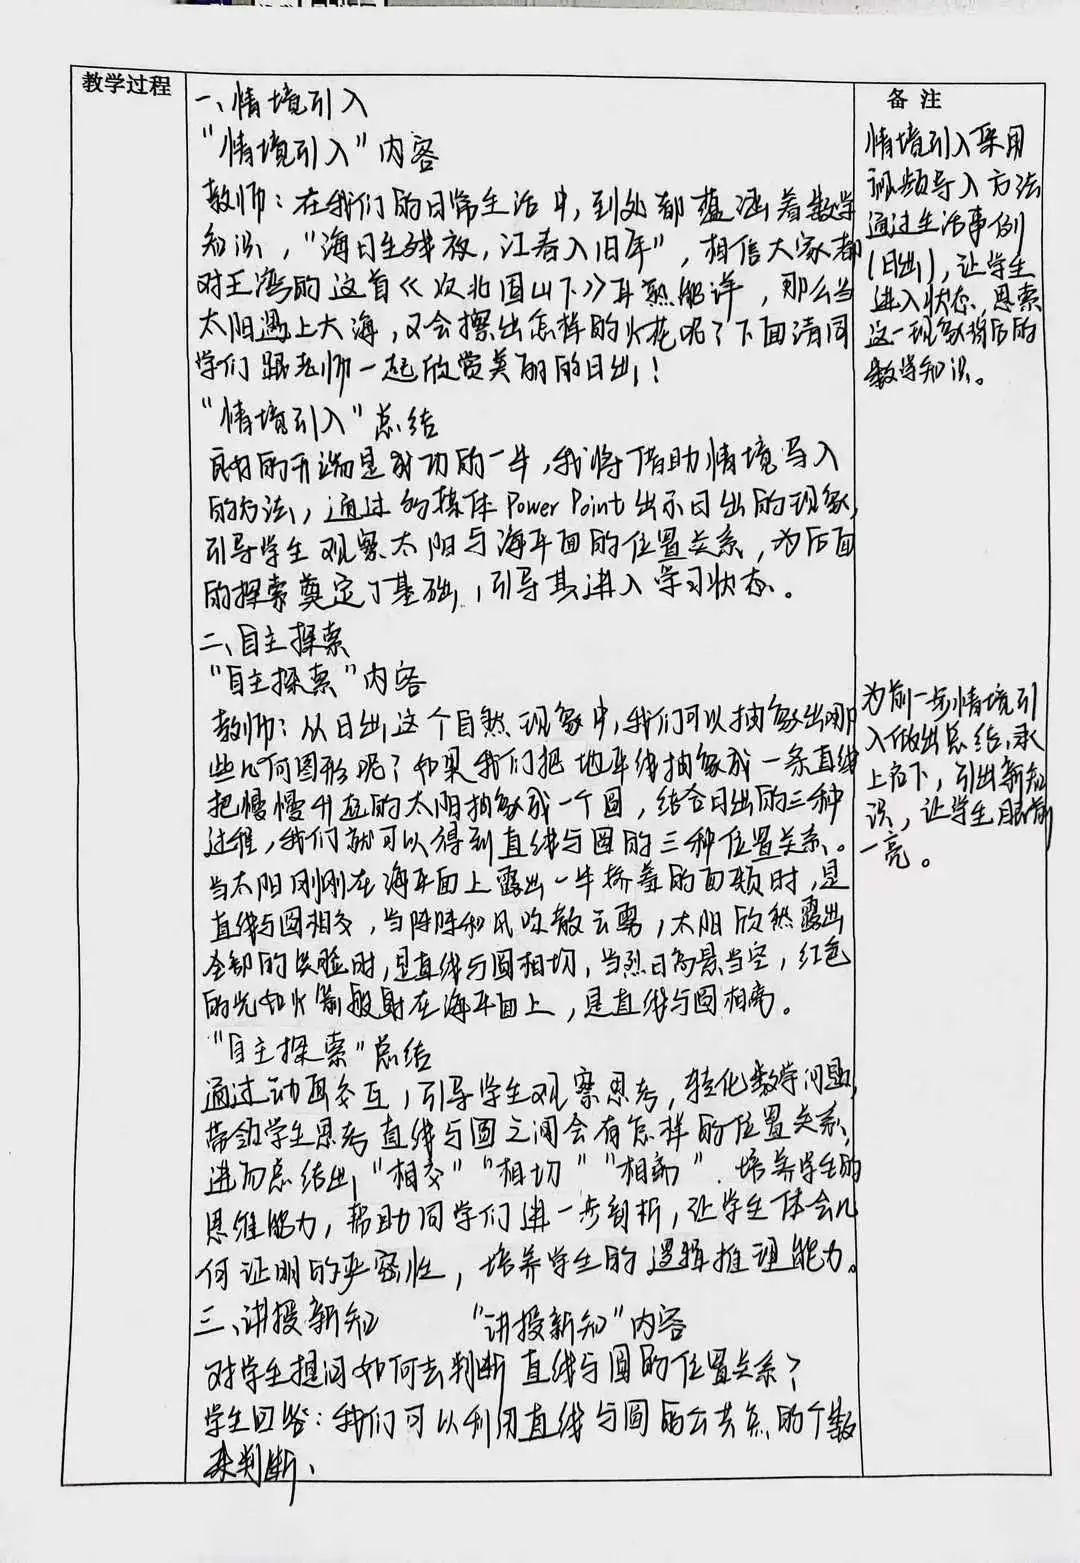 教学过程
一、情境引入
“情境引入”内容
教师：在我们的日常生活中，到处都蕴涵着数学
知识，“海日生残夜，江春入旧年”，相信大家都
对王湾的这首《次北固山下》耳熟能详，那么当
太阳遇上大海，又会擦出怎样的火花呢？下面请同
学们跟老师一起欣赏美丽的日出！
“情境引入”总结
良好的开端是成功的一半，我将借助情境导入
的方法，通过多媒体Power Point出示日出的现象，
引导学生观察太阳与海平面的位置关系，为后面
的探索奠定了基础，引导其进入学习状态。
二、自主探索
“自主探索”内容
教师：从日出这个自然现象中，我们可以抽象出哪
些几何图形呢？如果我们把地平线抽象成一条直线
把慢慢升起的太阳抽象成一个圆，结合日出的三种
过程，我们就可以得到直线与圆的三种位置关系。
当太阳刚刚在海平面上露出一半娇羞的面颊时，是
直线与圆相交，当阵阵和风吹散云雾，太阳欣然露出
全部的笑脸时，是直线与圆相切，当烈日高悬当空，红色
的光如火箭般射在海平面上，是直线与圆相离。
“自主探索”总结
通过动画交互，引导学生观察思考，转化数学问题，
带领学生思考直线与圆之间会有怎样的位置关系，
进而总结出“相交”“相切”“相离”．培养学生的
思维能力，帮助同学们进一步剖析，让学生体会几
何证明的严密性，培养学生的逻辑推理能力。
三、讲授新知 “讲授新知”内容
对学生提问如何去判断直线与圆的位置关系？
学生回答：我们可以利用直线与圆的公共点的个数
来判断、
备注
情境引入采用
视频导入方法
通过生活事例
（日出），让学生
进入状态，思索
这一现象背后的
数学知识。
为前一步情境引
入做出总结，承
上启下，引出新知
识，让学生眼前
一亮。